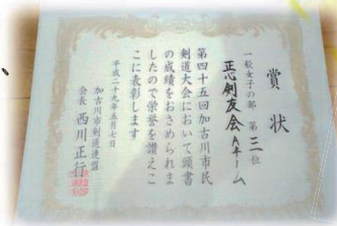 賞状
一般女子の部 第三位
正心剣友会Aチーム
第四十五回加古川市民
剣道大会において頭書
の成績をおさめられま
したので栄誉を讃えこ
こに表彰します
平成二十九年五月七日
加古川市剣道連盟
会長 西川正行